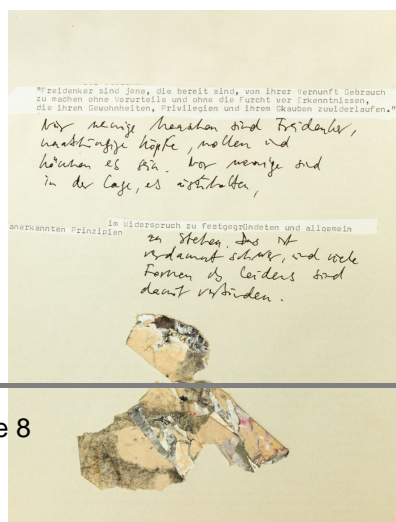 "Freidenker sind jene, die bereit sind, von ihrer Vernunft Gebrauch
zu machen ohne Vorurteile und ohne die Furcht vor Erkenntnissen,
die ihren Gewohnheiten, Privilegien und ihrem Gkauben zuwiderlaufen."
Nur wenige Menschen sind Freidenker,
unabhängige Köpfe, wollen und
können es sein. Nur wenige sind
in der Lage, es auszuhalten,
im Widerspruch zu festgegründeten und allgemein
anerkannten Prinzipien
zu stehen. Das ist
verdammt schwer, und viele
Formen des Leidens sind
damit verbunden.
e 8